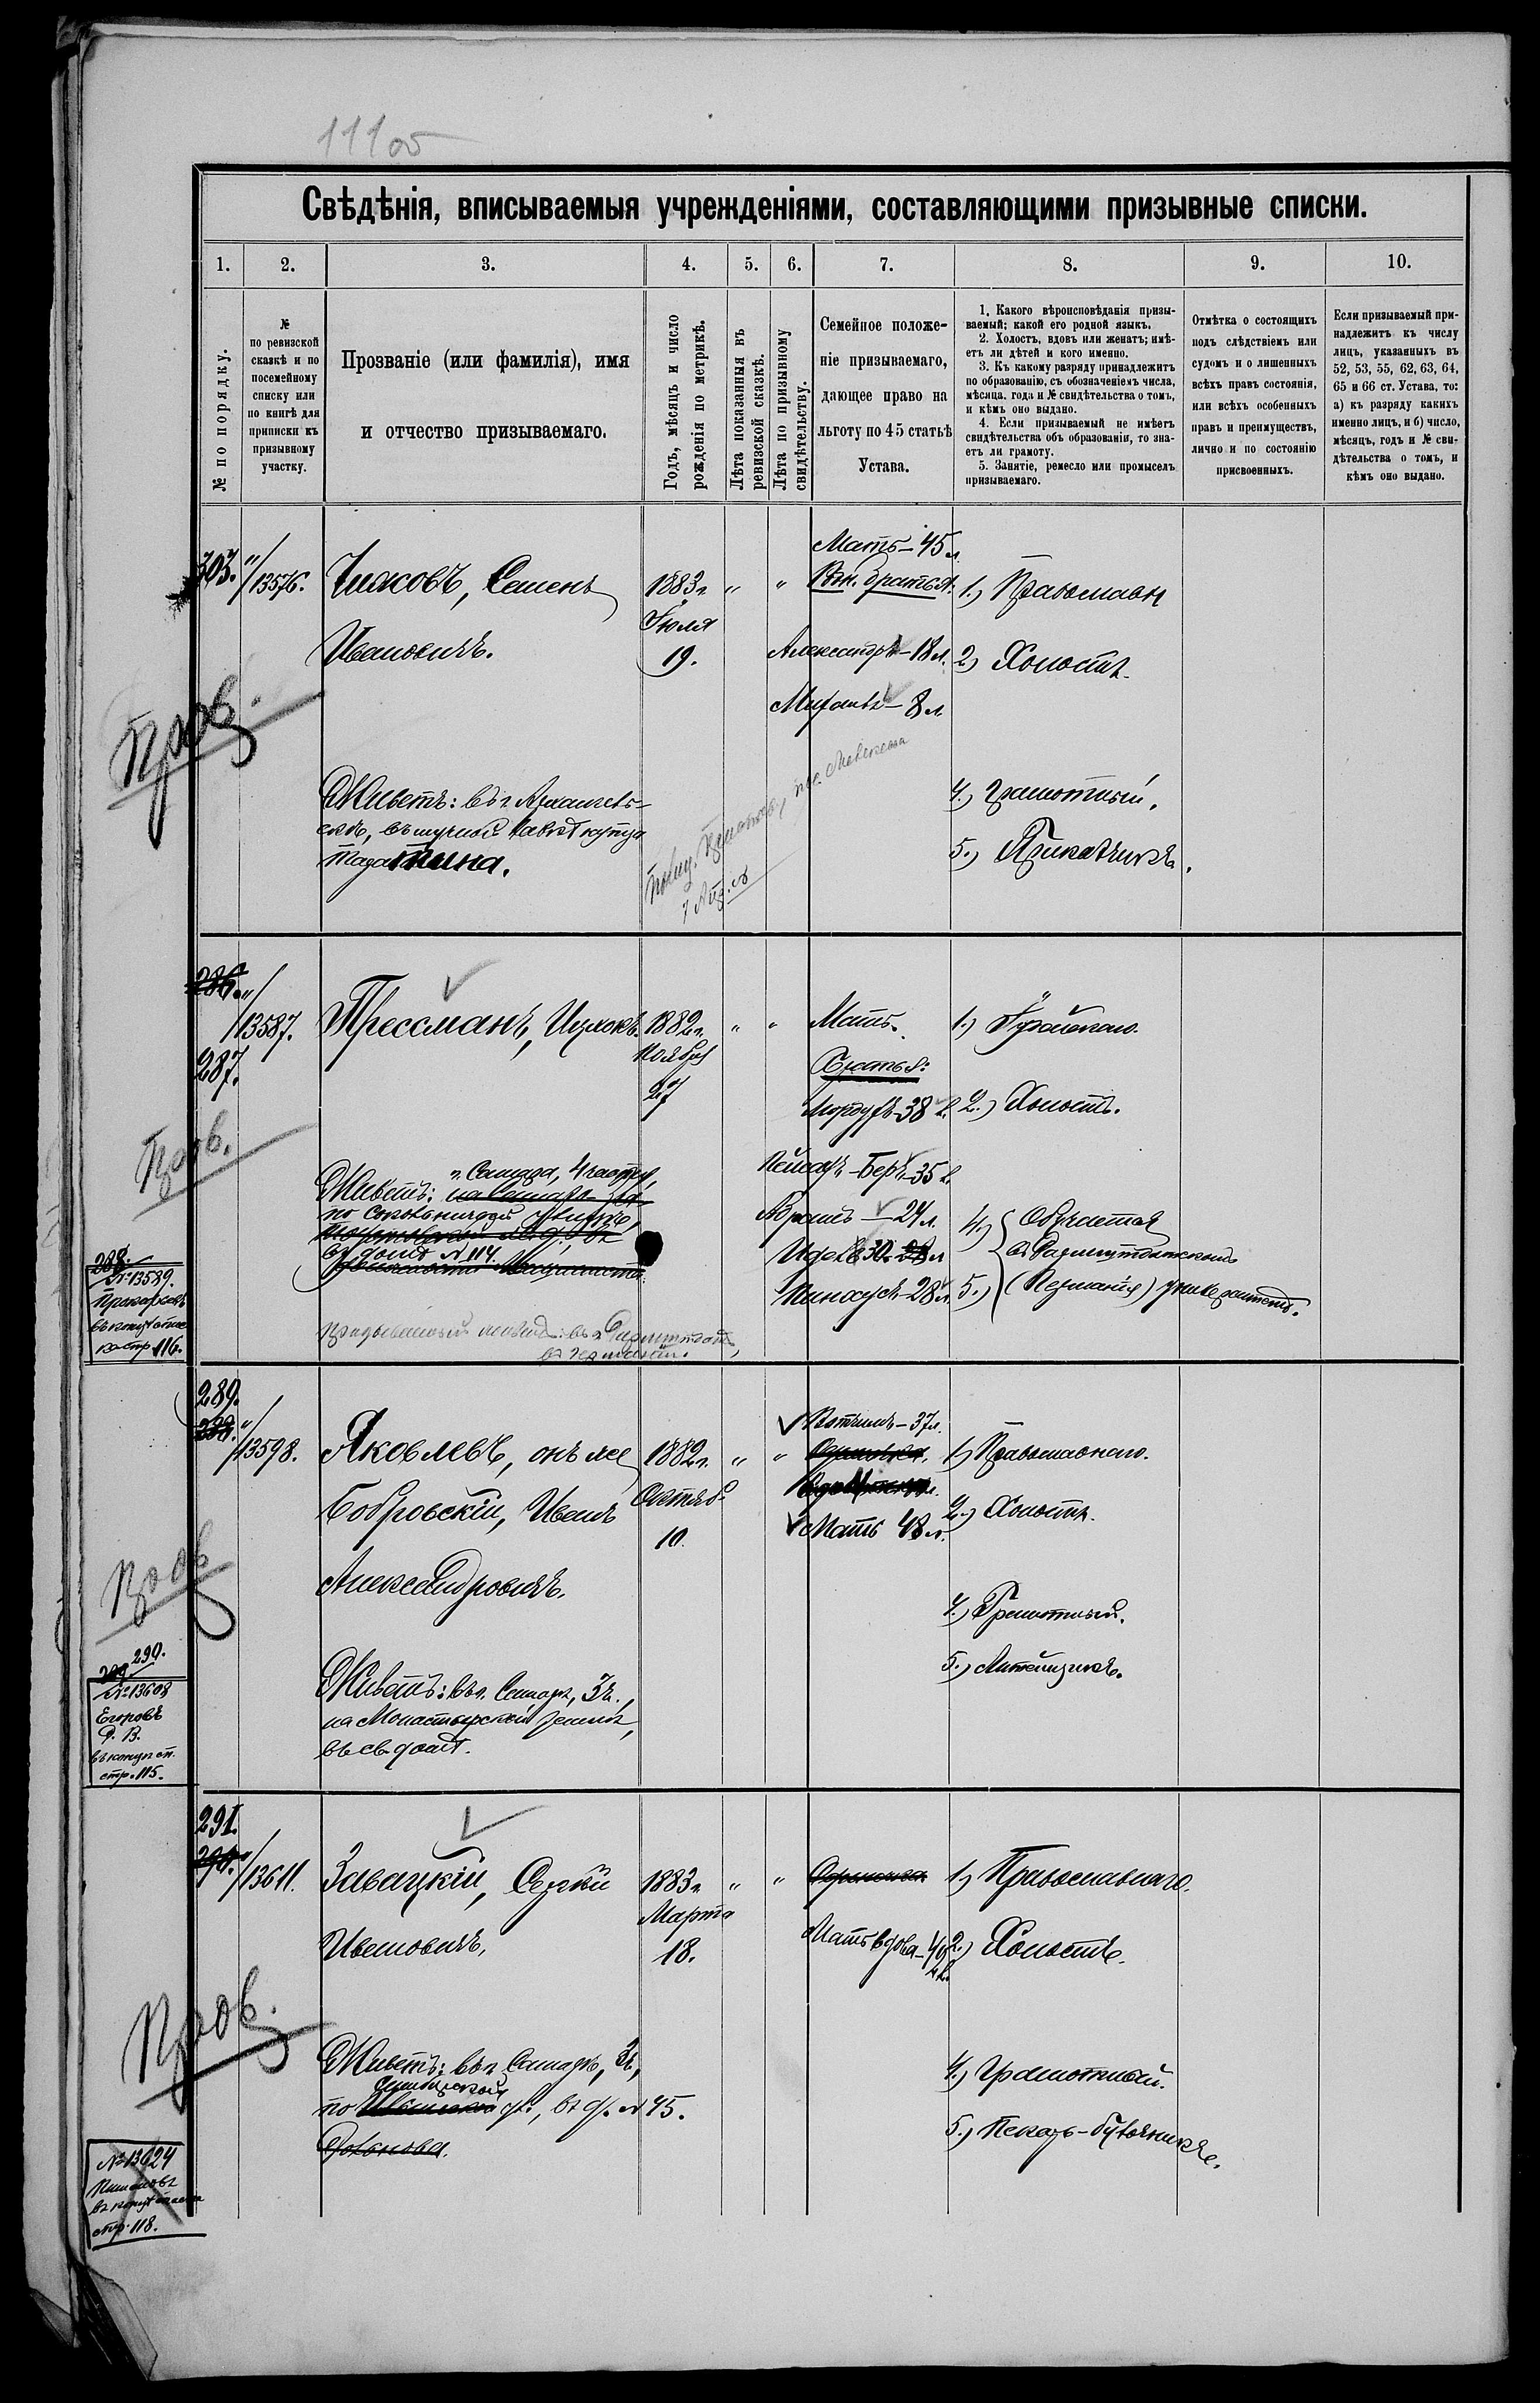 111 об
Свѣдѣнія, вписываемыя учрежденіями, составляющими призывные списки.
1.
2.
3.
4.
5.
6.
7.
8.
9.
10.
№ по порядку.
№
по ревизской
сказкѣ и по
посемейному
списку или
по книгѣ для
приписки къ
призывному
участку.
Прозваніе (или фамилія), имя
и отчество призываемаго.
Годъ, мѣсяцъ и число
рожденія по метрикѣ.
Лѣта показанныя въ
ревизской сказкѣ.
Лѣта по призывному
свидѣтельству.
Семейное положе-
ніе призываемаго,
дающее право на
льготу по 45 статьѣ
Устава.
1. Какого вѣроисповѣданія призы-
ваемый; какой его родной языкъ.
2. Холостъ, вдовъ или женатъ; имѣ-
етъ ли дѣтей и кого именно.
3. Къ какому разряду принадлежитъ
по образованію, съ обозначеніемъ числа,
мѣсяца, года и № свидѣтельства о томъ,
и кѣмъ оно выдано.
4. Если призываемый не имѣетъ
свидѣтельства объ образованіи, то зна-
етъ ли грамоту.
5. Занятіе, ремесло или промыселъ
призываемаго.
Отмѣтка о состоящихъ
подъ слѣдствіемъ или
судомъ и о лишенныхъ
всѣхъ правъ состоянія,
или всѣхъ особенныхъ
правъ и преимуществъ,
лично и по состоянію
присвоенныхъ.
Если призываемый при-
надлежитъ къ числу
лицъ, указанныхъ въ
52, 53, 55, 62, 63, 64,
65 и 66 ст. Устава, то:
а) къ разряду какихъ
именно лицъ, и б) число,
мѣсяцъ, годъ и № сви-
дѣтельства о томъ, и
кѣмъ оно выдано.
303.
"/13576.
Чижовъ, Семенъ
Ивановичъ.
1883г.
Іюля
19.
"
"
Мать-45 л.
братья.
Александръ-18 л.
Михаилъ-8 л.
1.) Православн
2) Холостъ.
4.) грамотный.
5.) Приказчикъ.
Пров.
Живетъ: въ г. Архангель-
скѣ, въ мучной лавкѣ купца
286.
"/13587.
287.
Прессманъ, Ицхокъ.
1882г.
Ноября
27
"
"
Мать.
Братья:
Мордухъ-38 л.
Беръ-35 л.
24 л.
30
28 л.
1.) Іудейскаго.
2.) Холостъ.
4.) Обучается
5.) (Германія) университетѣ.
Пров.
г. Самара, 4 части,
Живетъ:
въ домѣ № 114.
въ г. Дармштадтѣ,
въ Германіи.
288.
№ 13589.
въ концѣ списка
на стр. 116.
289.
288.
"/13598.
Яковлевъ, онъ же
Бобровскій, Иванъ
Александровичъ.
1882г.
Октяб.
10.
"
"
Вотчимъ-37 л.
Мать 48 л.
1.) Православнаго.
2.) Холостъ.
4.) Грамотный.
5.) Литейщикъ.
Пров
Живетъ: въ г. Самарѣ, 3 ч.,
на Монастырской земли,
въ св. домѣ.
290.
289.
№ 13608
Егоровъ
въ концѣ сп.
стр. 115.
291.
290.
"/13611.
Завацкій, Сергѣй
Ивановичъ.
1883г.
Марта
18.
"
"
Одиночка
Мать вдова-
1.) Православнаго.
2.) Холостъ.
4.) Грамотный.
5.) Пекарь-булочникъ.
Пров.
Живетъ: въ г. Самарѣ, 3 ч.,
Симбирской
по ул., въ д. № 45.
№ 13624
въ концѣ списка
стр. 118.